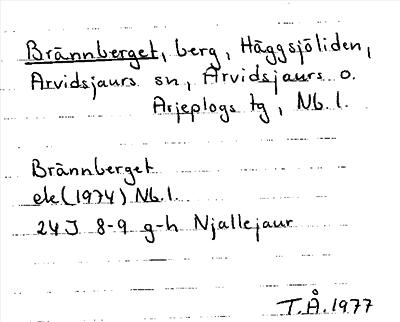 Brännberget, berg, Häggsjöliden,
Arvidsjaurs sn, Arvidsjaurs o.
Arjeplogs tg, Nb. l.
Brännberget
ek (1974) Nb. l.
24J 8-9 g-h Njallejaur
T.Å. 1977